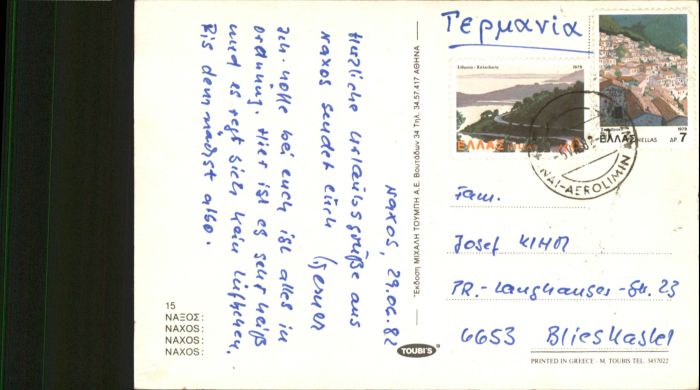 Naxos, 29.06.82
Herzliche Urlaubsgrüße aus
Naxos sendet Euch
Ich hoffe bei euch ist alles in
Ordnung. Hier ist es sehr heiß
und es regt sich kein Lüftchen.
Bis dann nächst also.
15
ΝΑΞΟΣ:
NAXOS:
NAXOS:
NAXOS:
Έκδοση ΜΙΧΑΛΗ ΤΟΥΜΠΗ Α.Ε. Βουτάδων 34 Τηλ. 34.57.417 ΑΘΗΝΑ
TOUBI'S
Γερμανία
1979
ΕΛΛΑΣ
1979
ΕΛΛΑΣ HELLAS ΔΡ. 7
-AEROLIMIN
Fam.
Josef
PR.-Langhauser-Str. 23
6653 Blieskastel
PRINTED IN GREECE - M. TOUBIS TEL. 3457022